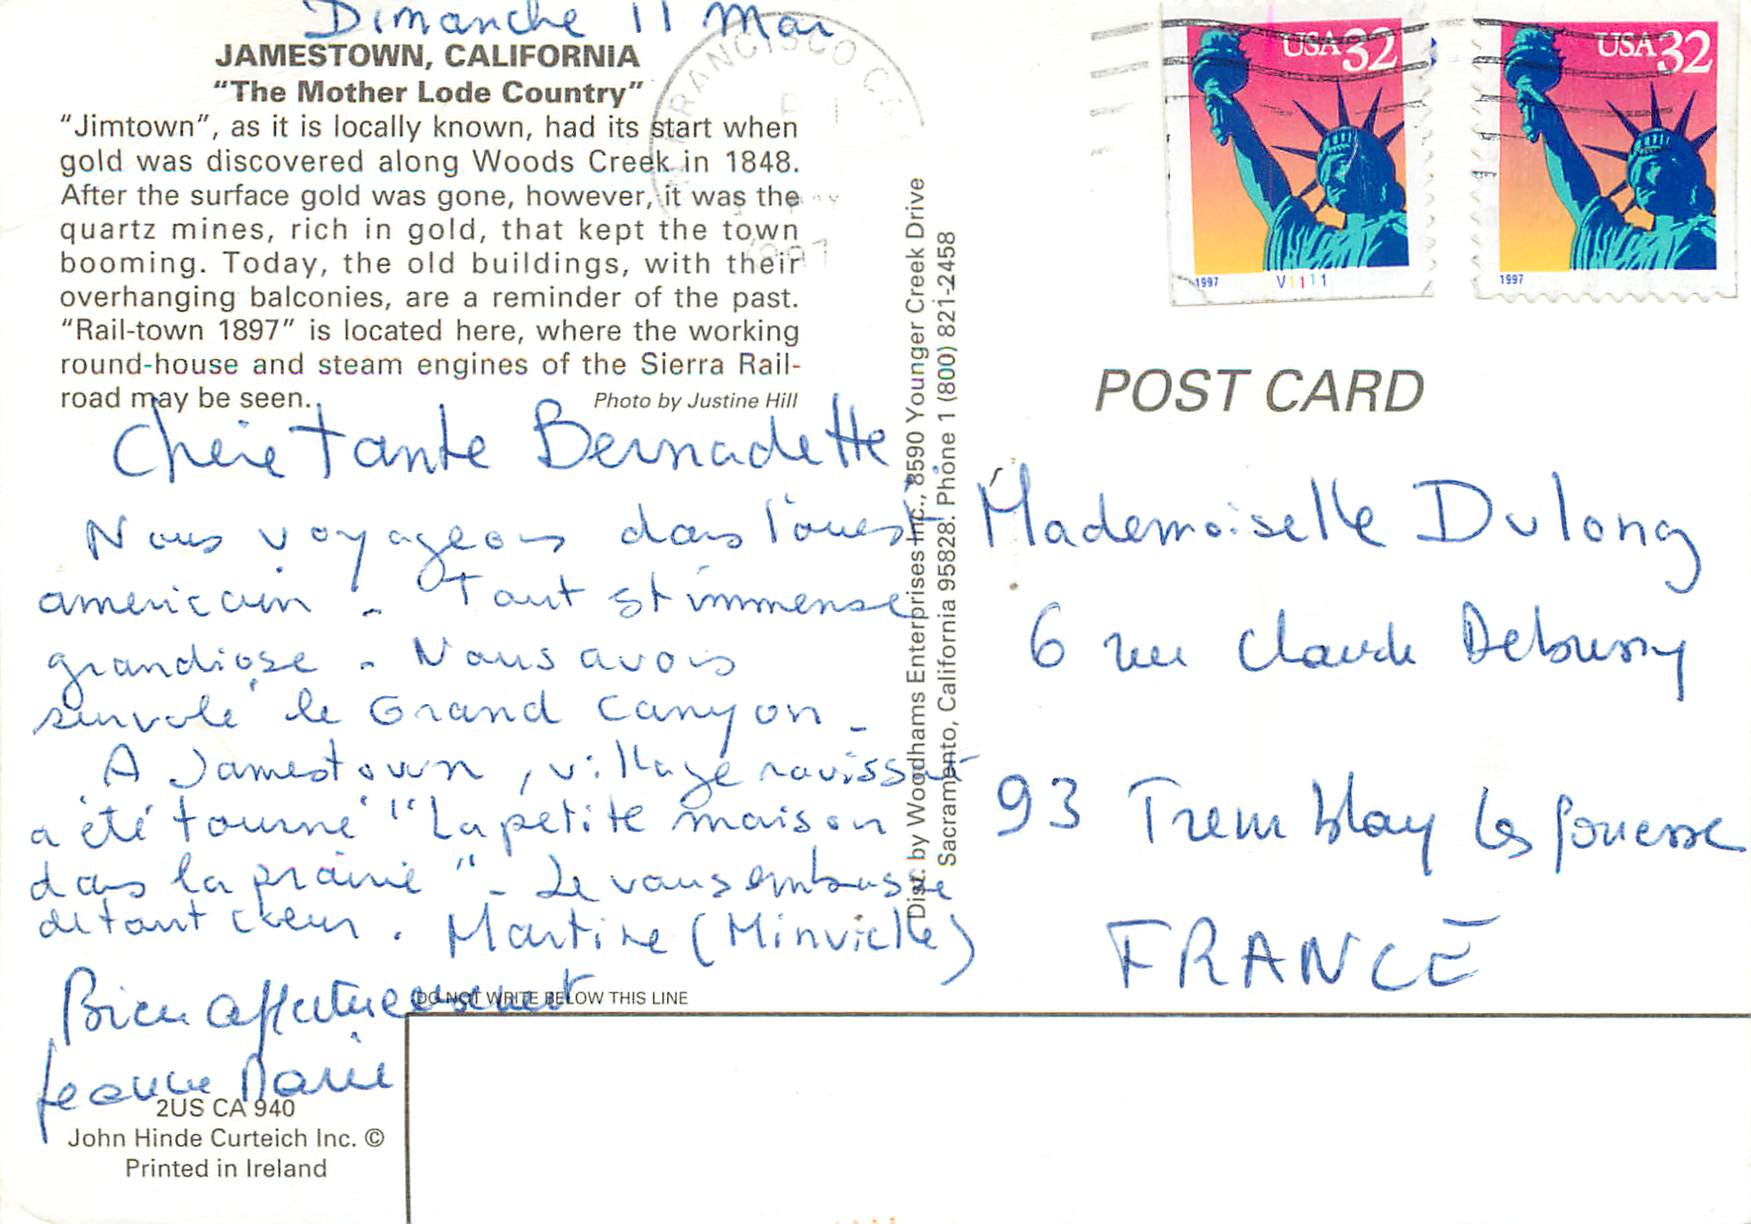 Dimanche 11 Mai
JAMESTOWN, CALIFORNIA
“The Mother Lode Country”
“Jimtown”, as it is locally known, had its start when
gold was discovered along Woods Creek in 1848.
After the surface gold was gone, however, it was the
quartz mines, rich in gold, that kept the town
booming. Today, the old buildings, with their
overhanging balconies, are a reminder of the past.
“Rail-town 1897” is located here, where the working
round-house and steam engines of the Sierra Rail-
road may be seen.
Photo by Justine Hill
Chère Tante Bernadette
Nous voyageons dans l'ouest
americain - Tout est immense
grandiose - Nous avons
survolé le Grand Canyon -
A Jamestown, village ravissant
a été tourné "La petite maison
dans la prairie" - Je vous embrasse
de tout coeur. Martine (Minvielle)
Bien affectueusement
Jeanne Marie
DO NOT WRITE BELOW THIS LINE
2US CA 940
John Hinde Curteich Inc. ©
Printed in Ireland
Dist. by Woodhams Enterprises Inc., 8590 Younger Creek Drive
Sacramento, California 95828. Phone 1 (800) 821-2458
FRANCISCO CA
1997
USA 32
1997
V1111
USA 32
1997
POST CARD
Mademoiselle Dulong
6 rue Claude Debussy
93 Tremblay les Gonesse
FRANCE